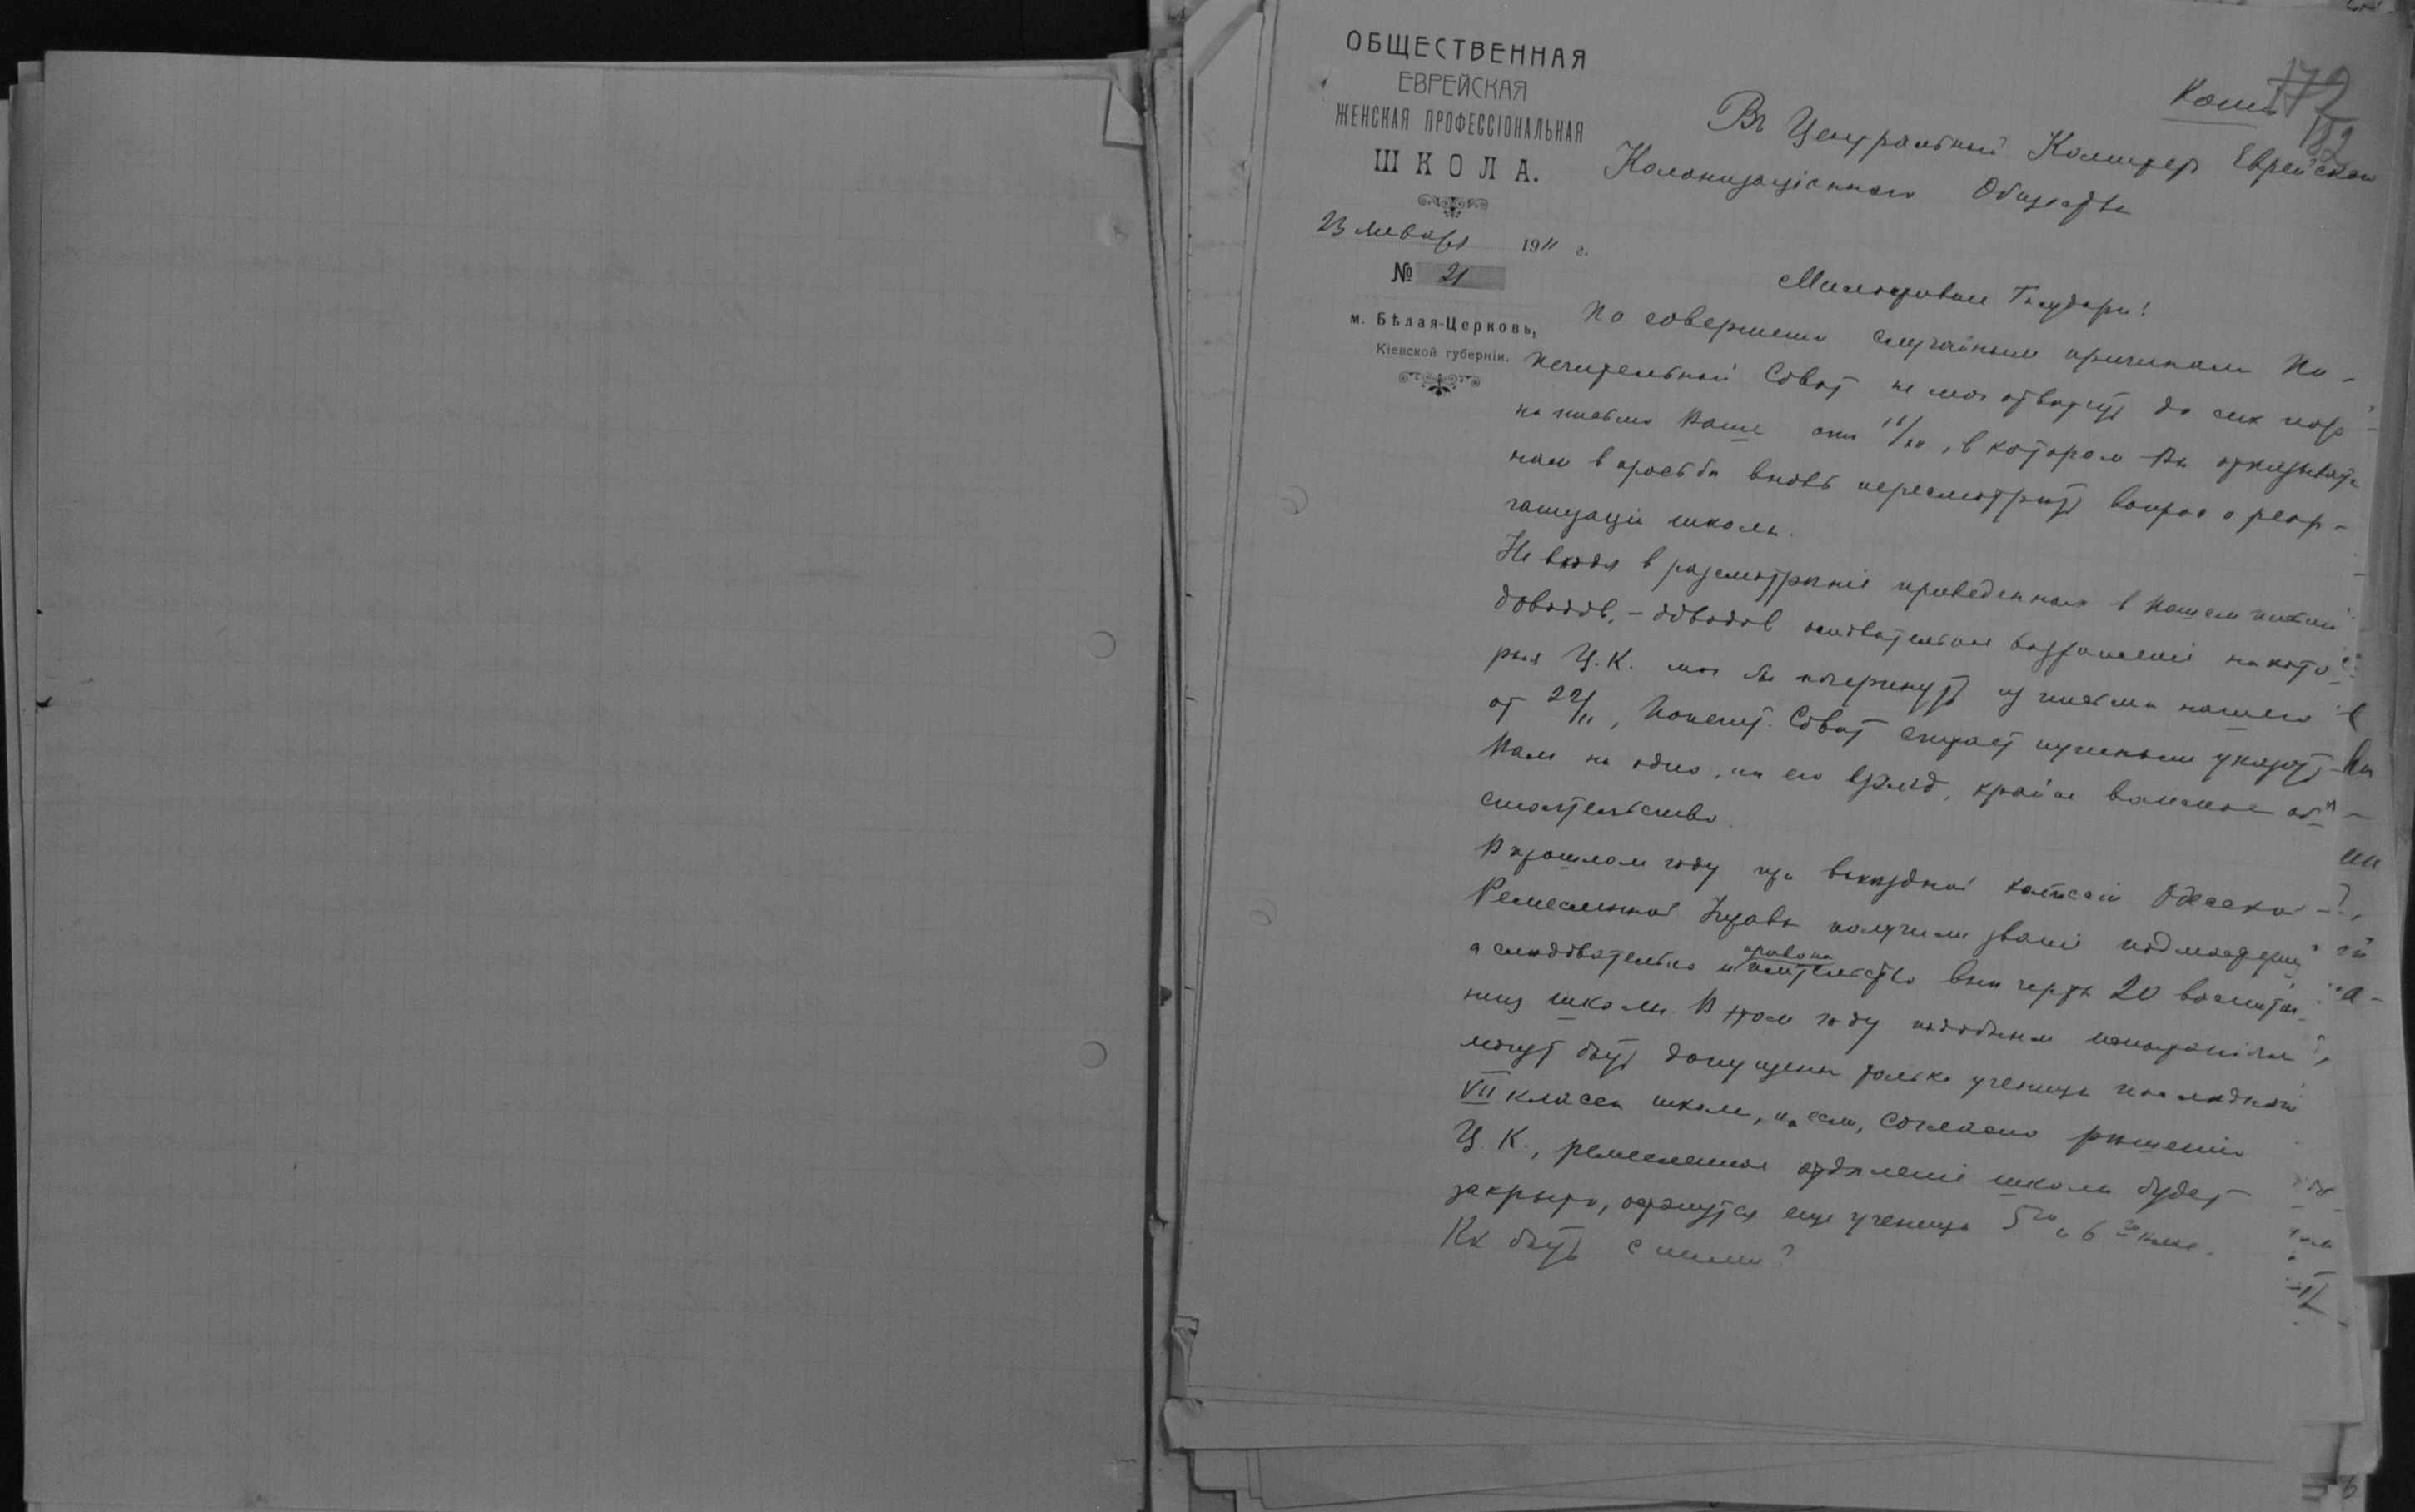 ОБЩЕСТВЕННАЯ
ЕВРЕЙСКАЯ
ЖЕНСКАЯ ПРОФЕССІОНАЛЬНАЯ
ШКОЛА.
23 января 1911 г.
№ 21
м. Бѣлая-Церковь,
Кіевской губерніи.
Копія
172
182
Въ Центральный Комитет Еврейскаго
Колонизаціоннаго Общества
Милостивые Государи!
По совершенно случайным причинам По-
печительный Совѣт не мог отвѣтить до сих пор
на письмо Ваше от 16/XII, в котором Вы отказываете
нам в просьбѣ вновь пересмотрѣть вопрос о реор-
ганизаціи школы.
Не входя в разсмотрѣніе приведенных в Вашем письмѣ
доводов, – доводов основательныя возраженія на кото-
рыя Ц.К. мог бы почерпнуть из письма нашего
от 22/11, Попечит. Совѣт считает нужным указать
Вам на одно, на его взгляд, крайне важное об-
стоятельство.
В прошлом году при выѣздной комиссіи Одесской
Ремесленной Управы получили званіе подмастериц
а слѣдовательно и право на жительство внѣ черты 20 воспитан-
ниц школы. В этом году подобным испытаніям
могут быть допущены только ученицы послѣдняго
VII класса школы, и, если, согласно рѣшенію
Ц.К., ремесленное отдѣленіе школы будет
закрыто, останутся еще ученицы 5го и 6го клас.
Как быть с ними?